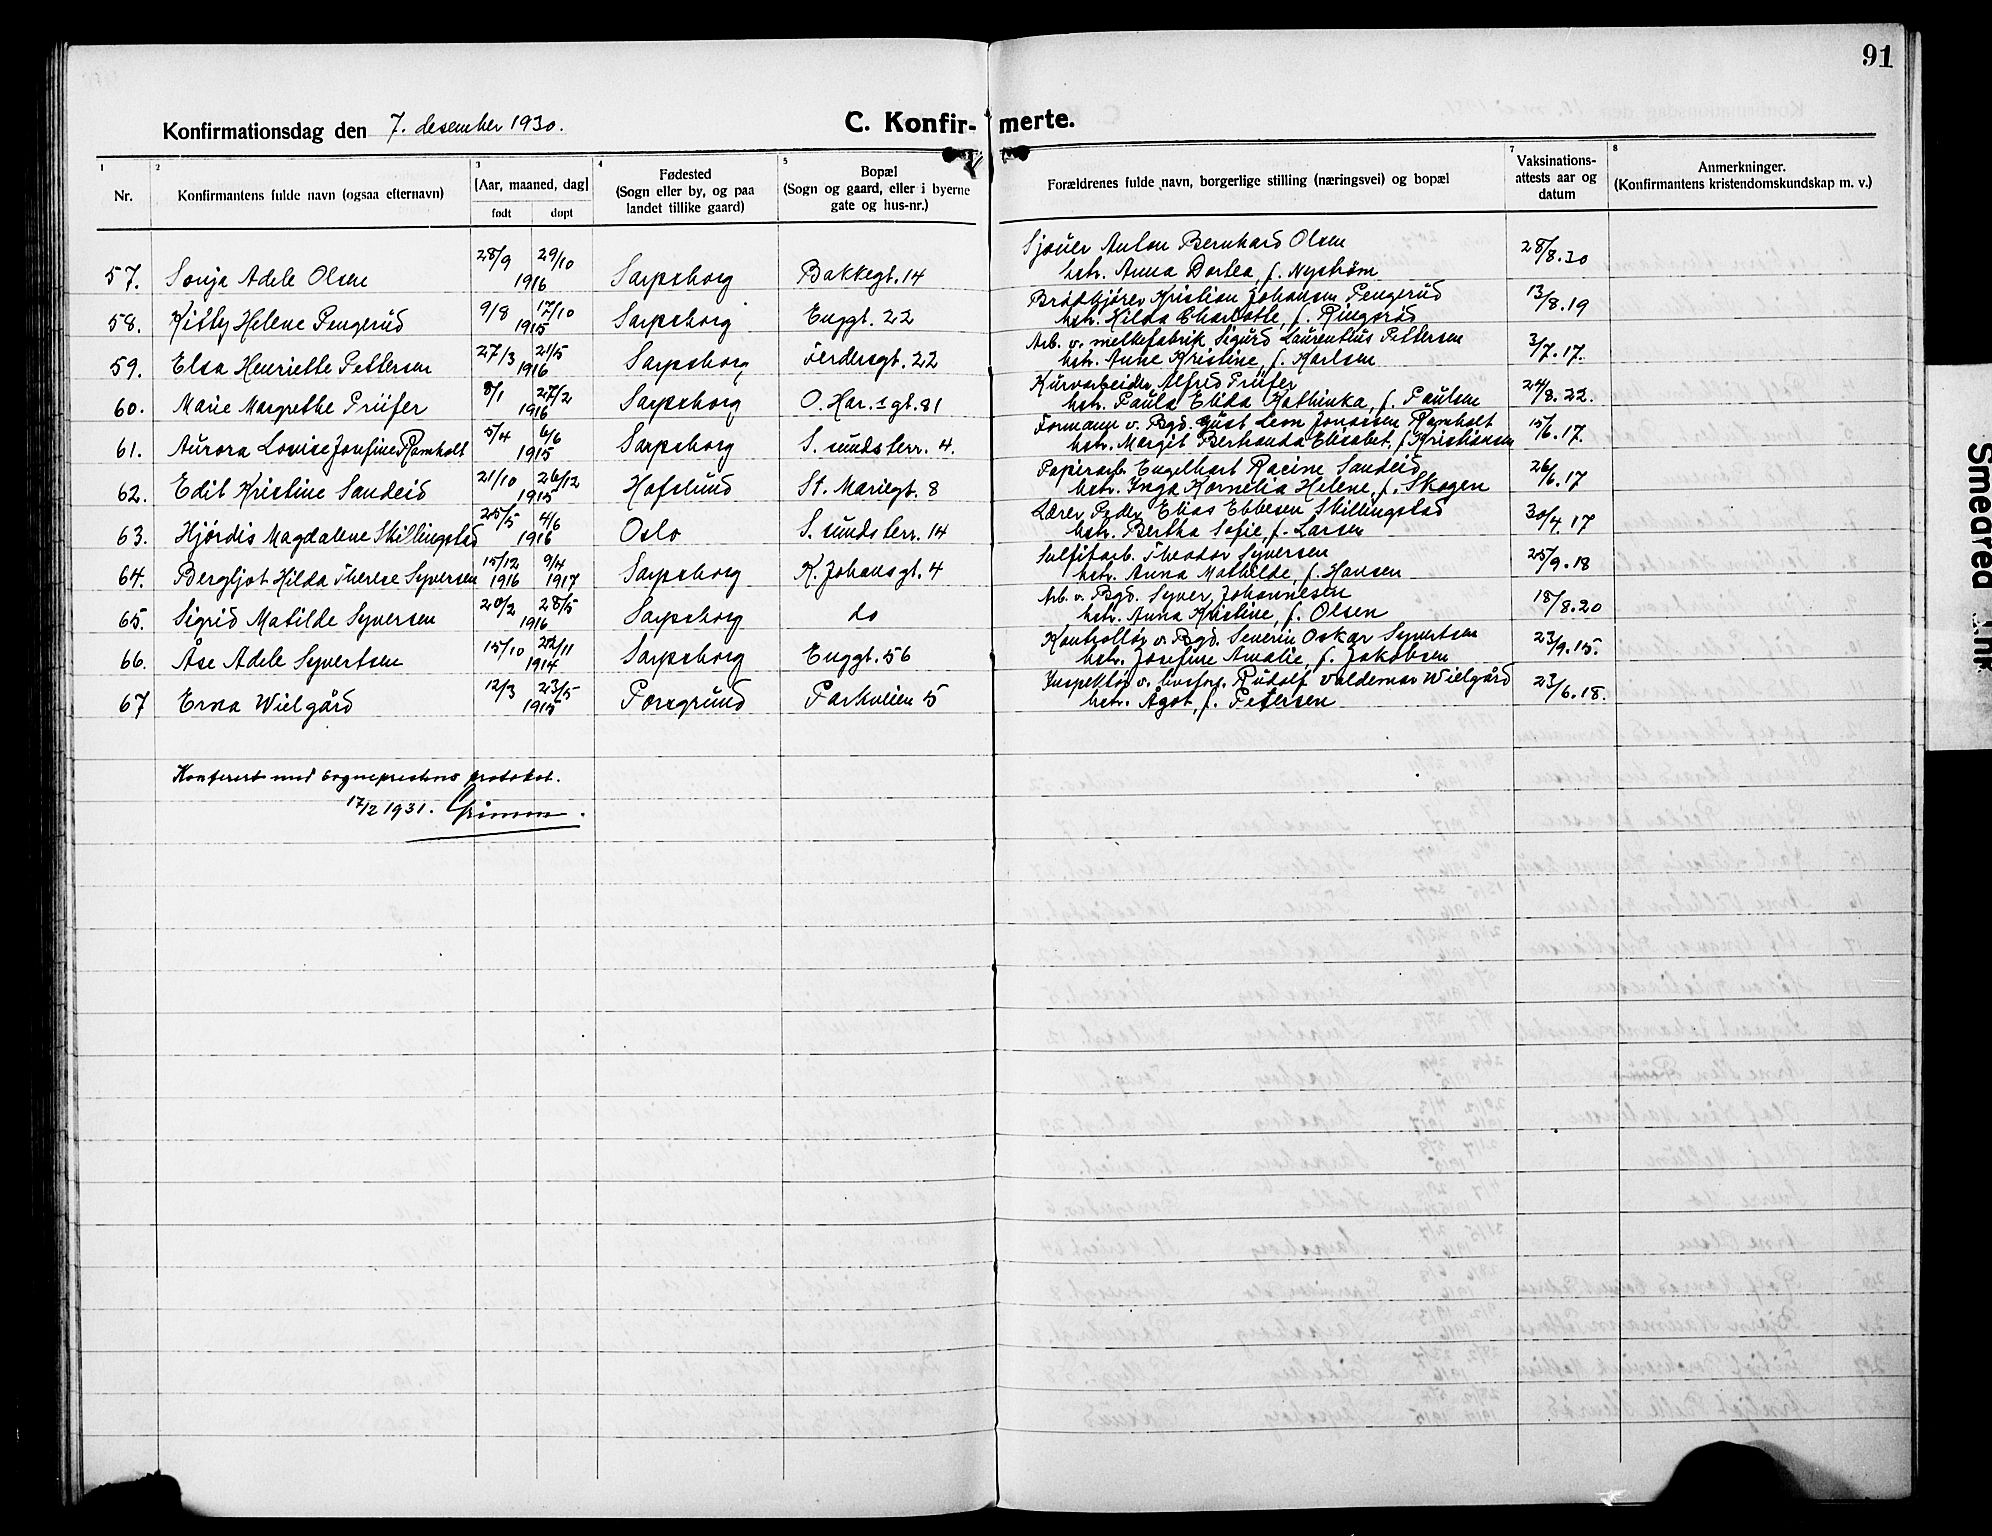 91
Konfirmationsdag den 7. desember 1930.
C. Konfir- merte.
1 2 3 4 5 7 8
Nr.
Konfirmantens fulde navn (ogsaa efternavn)
[Aar, maaned, dag]
født døpt
Fødested
(Sogn eller by, og paa
landet tillike gaard)
Bopæl
(Sogn og gaard, eller i byerne
gate og hus-nr.)
Forældrenes fulde navn, borgerlige stilling (næringsvei) og bopæl
Vaksinations-
attests aar og
datum
Anmerkninger.
(Konfirmantens kristendomskundskap m. v.)
57. Sonja Adele Olsen 28/9 29/10 1916 Sarpsborg Bakkegt. 14 Sjauer Anton Bernhard Olsen 28/8.30
hstr. Anna Dortea, f. Nystrøm
58. Kitty Helene Pengerud 9/8 17/10 1915 Sarpsborg Enggt. 22 Brødkjører Kristian Johansen Pengerud 13/8.19
hstr. Hilda Charlotte, f. Ringsrød
59. Elsa Henriette Pettersen 27/3 21/5 1916 Sarpsborg Ferdersgt. 22 Arb. v. meltefabrik Sigurd Laurentius Pettersen 3/7.17.
hstr. Anne Kristine, f. Karlsen
60. Marie Margrethe Prüfer 8/1 27/2 1916 Sarpsborg O. Har.s gt. 81 Kurvarbeider Alfred Prüfer 24/8.22.
hstr. Paula Elida Kathinka, f. Paulsen
61. Aurora Lovise Josefine Ramholt 5/4 6/6 1915 Sarpsborg S. sundsterr. 4. Formann v. Bgd. Gust Leon Jonassen Ramholt 15/6.17.
hstr. Margit Bertranda Elisabet, f. Kristiansen
62. Edit Kristine Sandeid 21/10 26/12 1915 Hafslund St. Mariegt. 8 Papirarb. Engelhart Racine Sandeid 26/6.17
hstr. Inga Kornelia Helene, f. Skogen
63. Hjørdis Magdalene Skillingstad 25/5 4/6 1916 Oslo S. sundsterr. 14 Lærer Peder Elias Ebbesen Skillingstad 30/4.17
hstr. Bertha Sofie, f. Larsen
64. Bergljot Hilda Therese Syversen 15/12 1916 9/4 1917 Sarpsborg K. Johansgt. 4 Sulfitarb. Theodor Syversen 25/9.18
hstr. Anna Mathilde, f. Hansen
65. Sigrid Matilde Syversen 20/2 28/5 1916 Sarpsborg do Arb. v. Bgd. Syver Johannesen 18/8.20
hstr. Anna Kristine, f. Olsen
66. Åse Adele Syvertsen 15/10 22/11 1914 Sarpsborg Enggt. 56 Kontrollør v. Bgd. Severin Oskar Syvertsen 23/9.15.
hstr. Josefine Amalie, f. Jakobsen
67 Erna Wielgård 12/3 23/5 1915 Porsgrund Parkveien 5 Inspektør v. livsfors. Rudolf Valdemar Wielgård 23/6.18.
hstr. Ågot, f. Petersen
Konferert med sogneprestens protokol.
17/2 1931. Grimm.
Smeared Ink